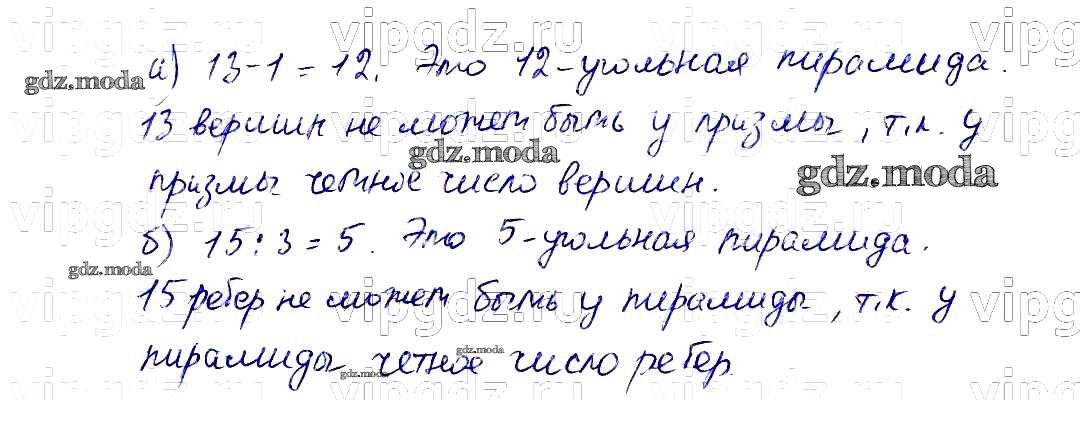 а) 13-1=12. Это 12-угольная пирамида.
13 вершин не может быть у призмы, т.к. у
призмы четное число вершин.
б) 15:3=5. Это 5-угольная пирамида.
15 ребер не может быть у пирамиды, т.к. у
пирамиды четное число ребер.
gdz.moda
gdz.moda
gdz.moda
gdz.moda
gdz.moda
gdz.moda
vipgdz.ru